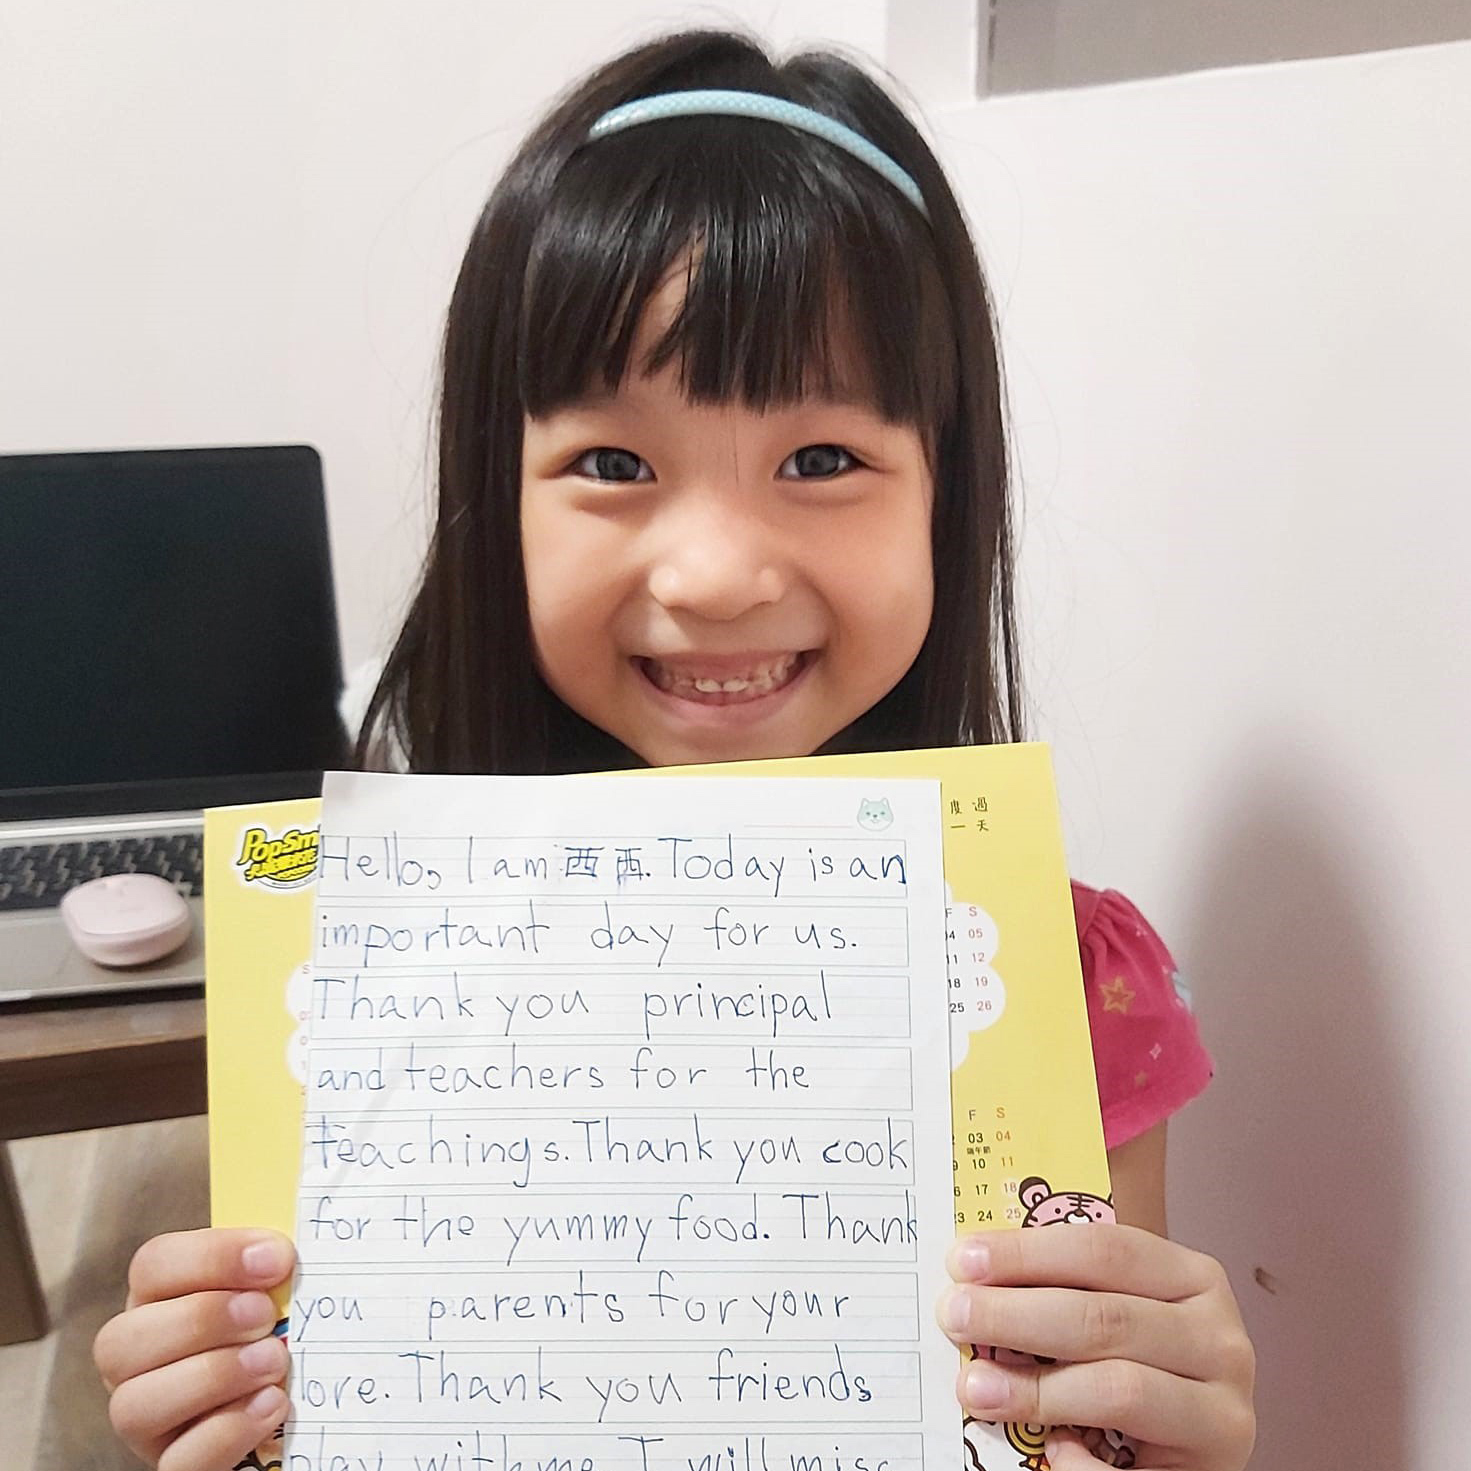 PopSmi
度過
一天
Hello, I am 西西. Today is an
important day for us.
Thank you principal
and teachers for the
teachings. Thank you cook
for the yummy food. Thank
you parents for your
love. Thank you friends
play with me I will miss
F S
04 05
11 12
18 19
25 26
F S
03 04
端午節
10 11
17 18
23 24 25